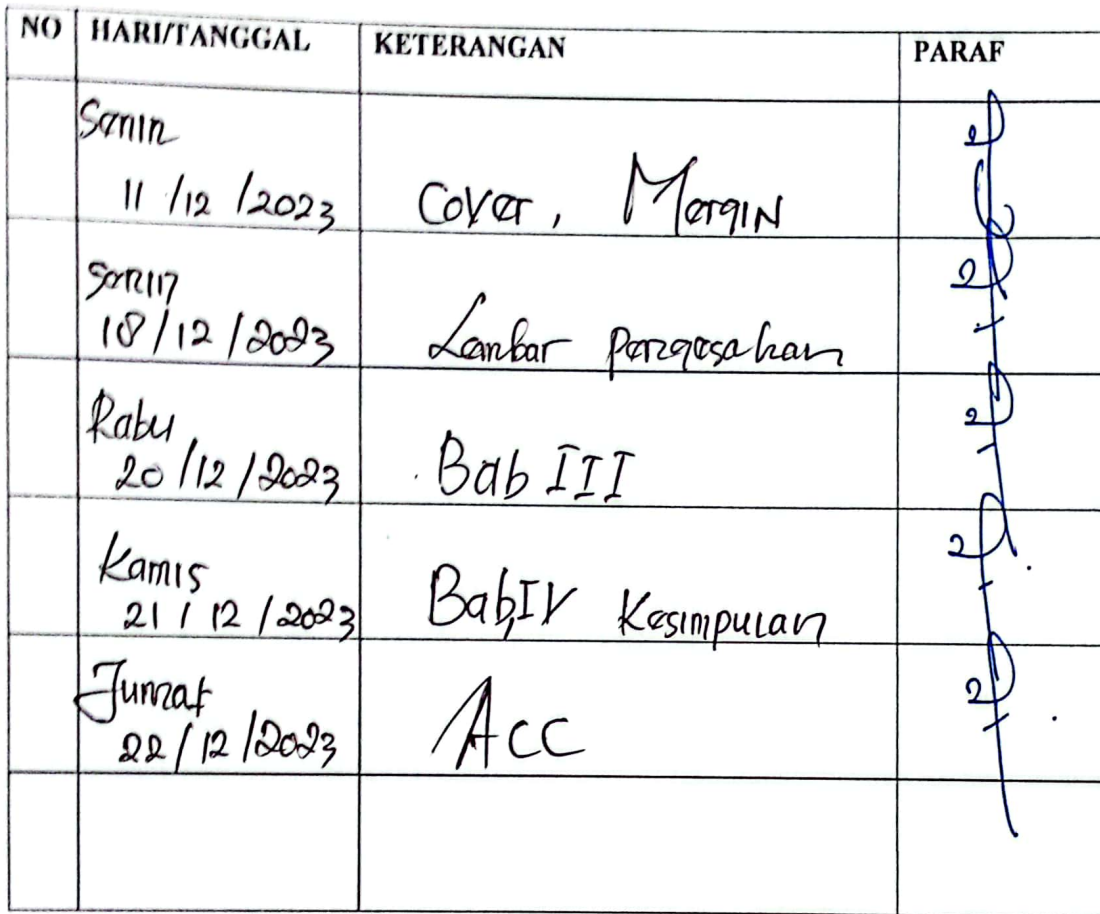 NO HARI/TANGGAL KETERANGAN PARAF
Senin
11/12/2023 Cover, Margin
Senin
18/12/2023 Lembar Pengesahan
Rabu
20/12/2023 Bab III
Kamis
21/12/2023 Bab,IV Kesimpulan
Jum'at
22/12/2023 Acc